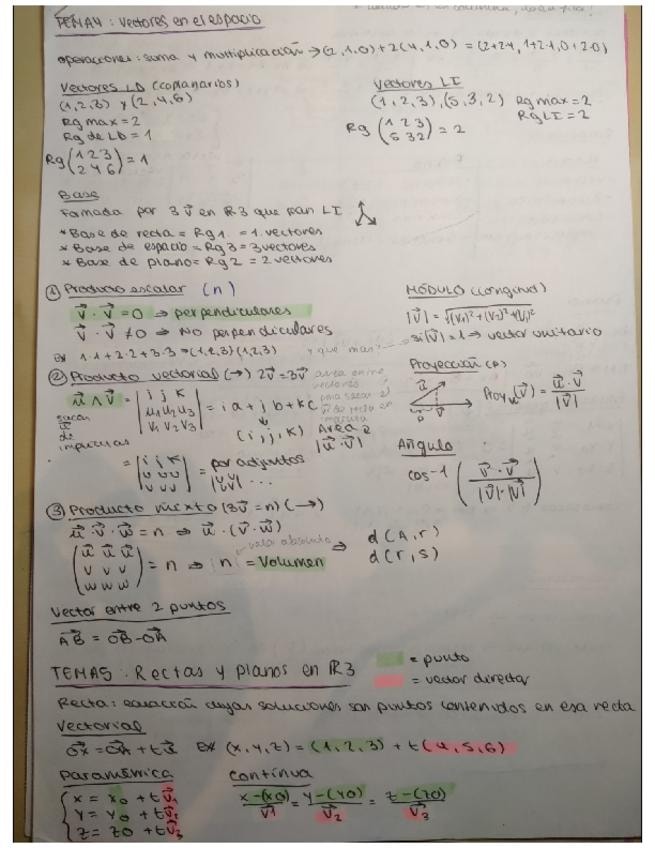 TEMA4: Vectores en el espacio
operaciones: suma y multiplicación → (2,1,0)+2(4,1,0) = (2+2·4, 1+2·1, 0+2·0)
Vectores LD (coplanarios)
(1,2,3) y (2,4,6)
Rg max = 2
Rg de LD = 1
Rg (1 2 3 / 2 4 6) = 1
Vectores LI
(1,2,3), (5,3,2) Rg max = 2
Rg LI = 2
Rg (1 2 3 / 5 3 2) = 2
Base
Formada por 3 v⃗ en R3 que son LI
* Base de recta = Rg 1. = 1 vectores
* Base de espacio = Rg 3 = 3 vectores
* Base de plano = Rg 2 = 2 vectores
① Producto escalar (n)
v⃗ · v⃗ = 0 ⇒ perpendiculares
v⃗ · v⃗ ≠ 0 ⇒ No perpendiculares
Ex 1·1+2·2+3·3 ⇒ (1,2,3)(1,2,3)
y que mas?
MÓDULO (longitud)
|v⃗| = √(V₁)²+(V₂)²+(V₃)²
si |v⃗| = 1 ⇒ vector unitario
② Producto vectorial (→) 2v⃗ = 3v⃗
area entre
vectores
u⃗ ∧ v⃗ = |i j k / u₁ u₂ u₃ / v₁ v₂ v₃| = i a + j b + k c
(i, j, k)
Area e
|u⃗ · v⃗|
= |i j k / u u u / v v v| = por adjuntos
|u u / v v| ...
Proyección (P)
Proy u (v⃗) = u⃗ · v⃗ / |v⃗|
Angulo
cos-1 ( v⃗ · v⃗ / |v⃗|·|v⃗| )
③ Producto mixto (3v⃗ = n) (→)
u⃗ · v⃗ · w⃗ = n ⇒ u⃗ · (v⃗ · w⃗)
valor absoluto
(u⃗ u⃗ u⃗ / v v v / w w w) = n ⇒ |n| = Volumen ⇒ d(A,r)
d(r,s)
Vector entre 2 puntos
AB⃗ = OB⃗ - OA⃗
TEMA5: Rectas y planos en R3
= punto
= vector director
Recta: ecuación cuyas soluciones son puntos contenidos en esa recta
Vectorial
OX⃗ = OA⃗ + t u⃗ Ex (x,y,z) = (1,2,3) + t(4,5,6)
Paramétrica
x = x0 + t v⃗₁
y = y0 + t v⃗₂
z = z0 + t v⃗₃
Continua
x-(x0) / v⃗1 = y-(y0) / v⃗2 = z-(z0) / v⃗3